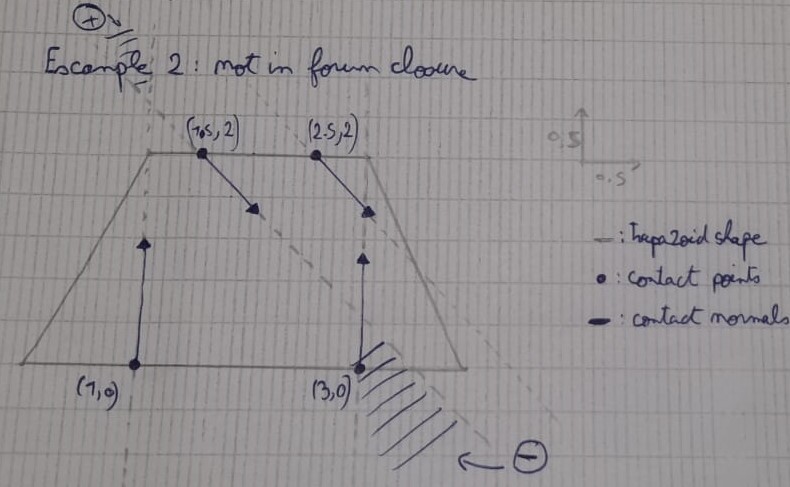 +
Example 2: not in forum closure
(1.5, 2)
(2.5, 2)
0.5
0.5
: trapazoid shape
: contact points
: contact normals
(1,0)
(3,0)
-